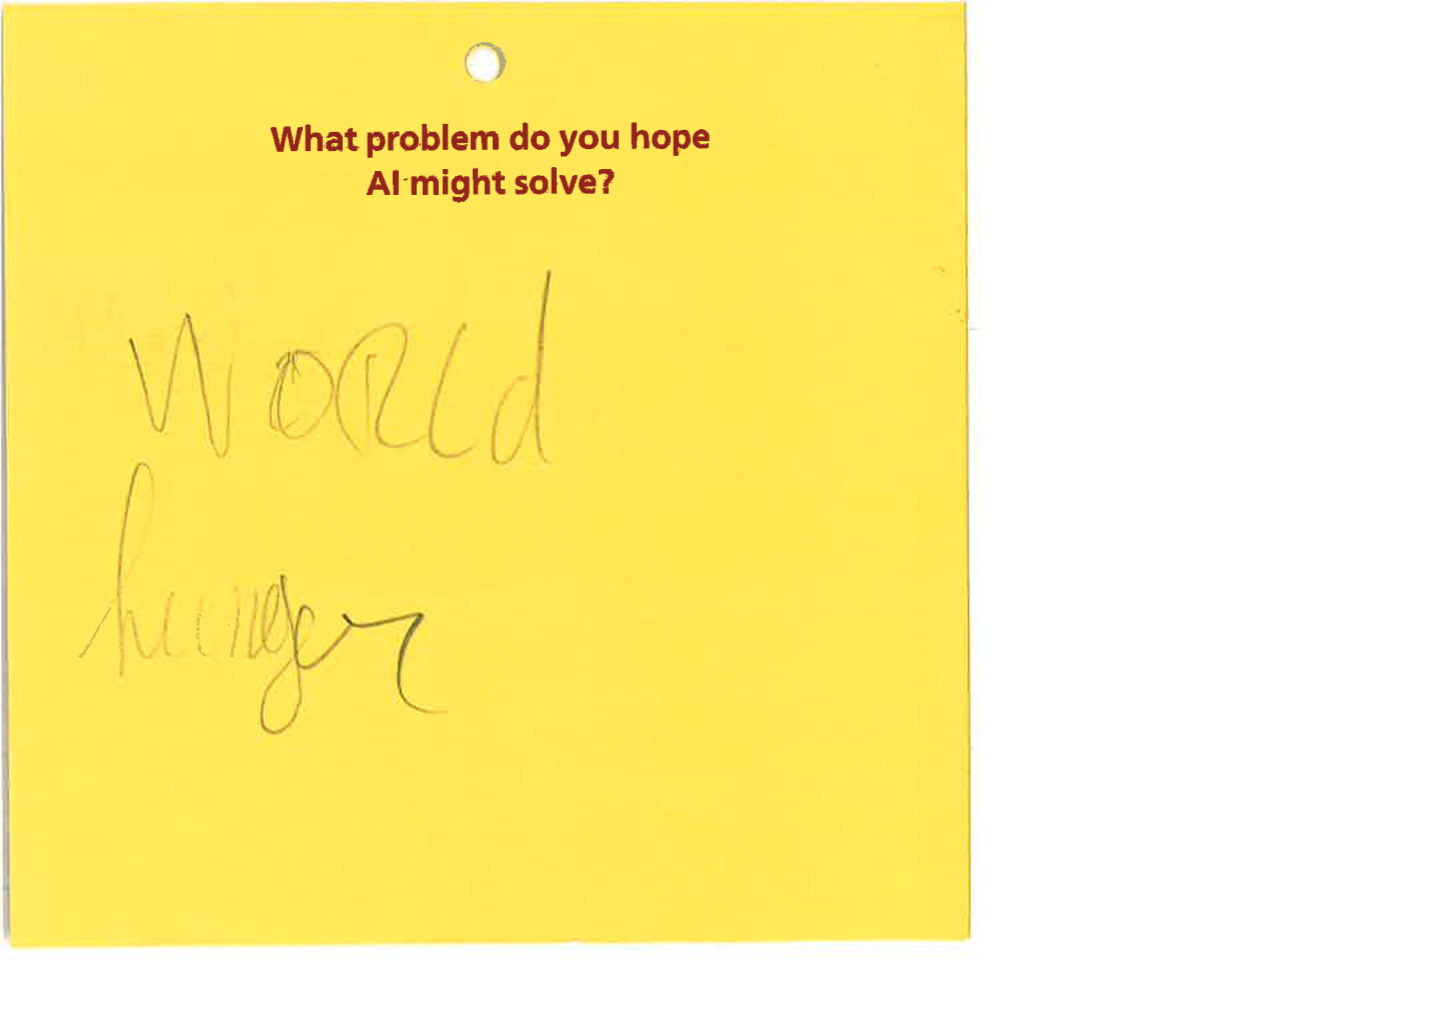 What problem do you hope
AI might solve?
WORLd
hunger